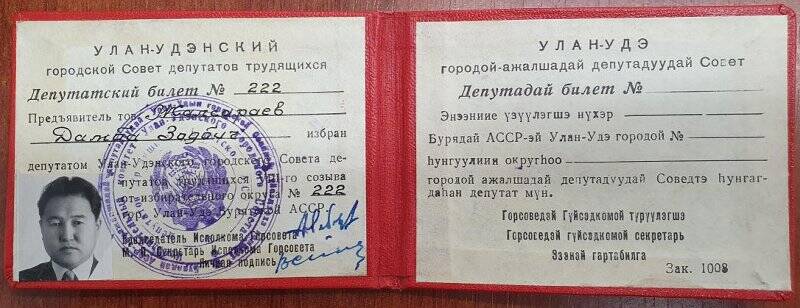 УЛАН-УДЭНСКИЙ
городской Совет депутатов трудящихся
Депутатский билет № 222
Предъявитель тов. Жалсараев
Дамба Зодбич избран
депутатом Улан-Удэнского городского Совета де-
путатов трудящихся VIII-го созыва
от избирательного округа № 222
гор. Улан-Удэ Бурятской АССР
Председатель Исполкома Горсовета
М. П. Секретарь Исполкома Горсовета
Личная подпись
УЛАН-УДЭ
городой-ажалшадай депутадуудай Совет
Депутадай билет №
Энээниие үзүүлэгшэ нүхэр
Бурядай АССР-эй Улан-Удэ городой №
һунгуулиин округһоо
городой ажалшадай депутадуудай Советдэ һунгаг-
даһан депутат мүн.
Горсоведай Гүйсэдкомой түрүүлэгшэ
Горсоведай Гүйсэдкомой секретарь
Эзэнэй гартабилга
Зак. 1008